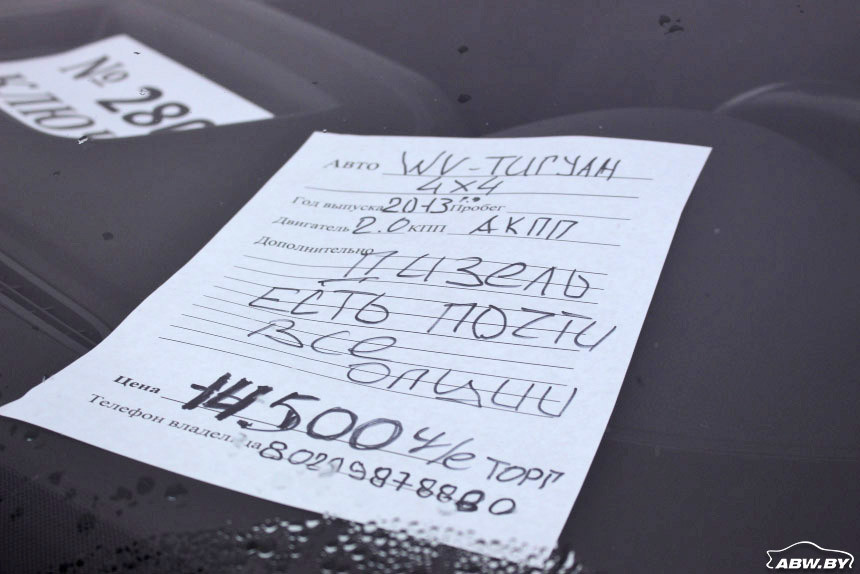 № 280
КЛЮЧ
Авто WV-ТИГУАН
4х4
Год выпуска 2013г. Пробег
Двигатель 2.0 КПП АКПП
Дополнительно
ДИЗЕЛЬ
ЕСТЬ ПОЧТИ
ВСе
ОПЦИИ
Цена 14.500 у/е ТОРГ
Телефон владельца 80219878880
ABW.BY